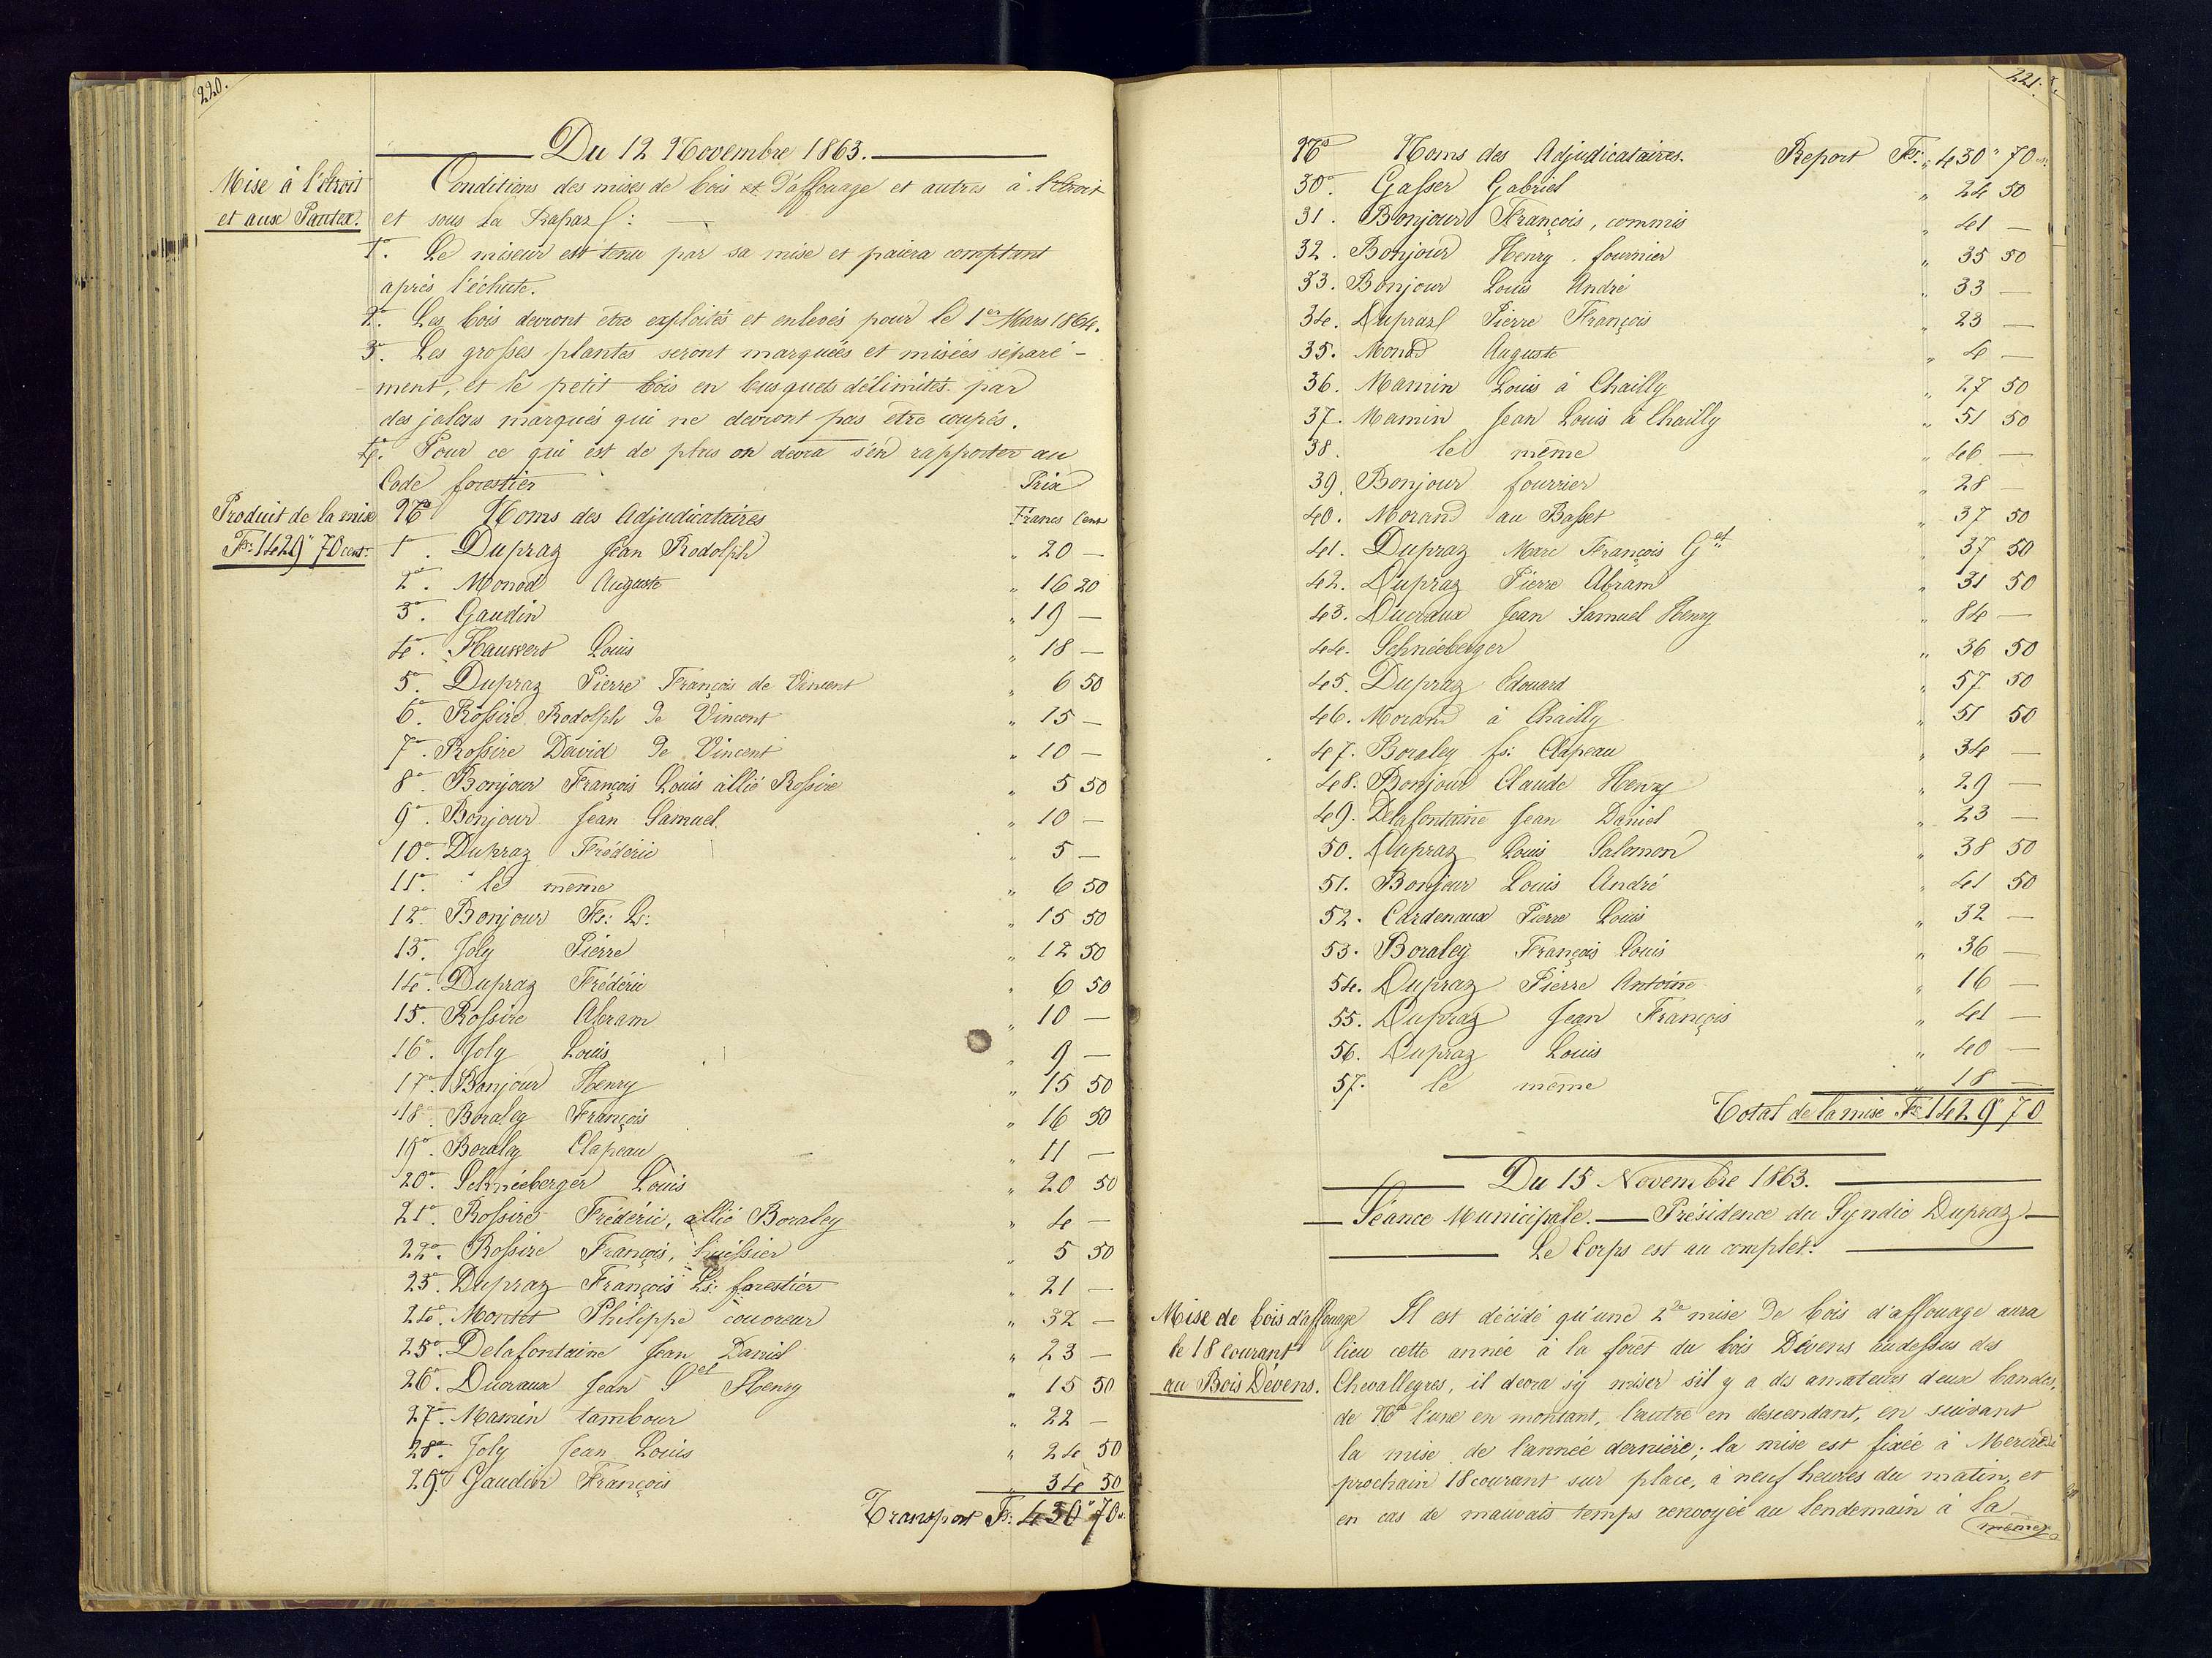 220.
Du 12 Novembre 1863.
Mise à l'étroit
et aux Pautex.
Conditions des mises de bois et d'affouage et autres à l'étroit
et sous la Rapaz :
1°. Le miseur est tenu par sa mise et paiera comptant
après l'échute.
2°. Les bois devront être exploités et enlevés pour le 1er Mars 1864.
3°. Les grosses plantes seront marquées et misées séparé-
ment, et le petit bois en busquets délimités par
des jalons marqués qui ne devront pas être coupés.
4°. Pour ce qui est de plus on devra s'en rapporter au
Code forestier
Produit de la mise
Fs. 1429" 70 cent.
Prix
Nos Noms des Adjudicataires Francs Cent
1°. Dupraz Jean Rodolph " 20 —
2°. Monod Auguste " 16 20
3°. Gaudin " 19 —
4°. Hauvert Louis " 18 —
5°. Dupraz Pierre François de Vincent " 6 50
6°. Rossire Rodolph de Vincent " 15 —
7°. Rossire David de Vincent " 10 —
8°. Bonjour François Louis allié Rossire " 5 50
9°. Bonjour Jean Samuel " 10 —
10°. Dupraz Frédéric " 5 —
11°. le même " 6 50
12°. Bonjour Fs: Ls: " 15 50
13°. Joly Pierre " 12 50
14°. Dupraz Frédéric " 6 50
15°. Rossire Abram " 10 —
16°. Joly Louis " 9 —
17°. Bonjour Henry " 15 50
18°. Boraley François " 16 50
19°. Boraley Clapeau " 11 —
20°. Schnéeberger Louis " 20 50
21°. Rossire Frédéric, allié Boraley " 4 —
22°. Rossire François, huissier " 5 50
23°. Dupraz François Ls: forestier " 21 —
24°. Montet Philippe couvreur " 32 —
25°. Delafontaine Jean Daniel " 23 —
26°. Ducraux Jean Sel Henry " 15 50
27°. Mamin tambour " 22 —
28°. Joly Jean Louis " 24 50
29°. Gaudin François " 34 50
Transport Fs: 430" 70 c.
221.
Nos Noms des Adjudicataires. Report Fs: " 430" 70 c.
30°. Gasser Gabriel " 24 50
31. Bonjour François, commis " 41 —
32. Bonjour Henry fournier " 35 50
33. Bonjour Louis André " 33 —
34. Dupraz Pierre François " 23 —
35. Monod Auguste " 4 —
36. Mamin Louis à Chailly " 27 50
37. Mamin Jean Louis à Chailly " 51 50
38. le même " 46 —
39. Bonjour fourrier " 28 —
40. Morand au Basset " 37 50
41. Dupraz Marc François Gel " 37 50
42. Dupraz Pierre Abram " 31 50
43. Ducraux Jean Samuel Henry " 84 —
44. Schnéeberger " 36 50
45. Dupraz Edouard " 57 50
46. Morand à Chailly " 51 50
47. Boraley fs: Clapeau " 34 —
48. Bonjour Claude Henry " 29 —
49. Delafontaine Jean Daniel " 23 —
50. Dupraz Louis Salomon " 38 50
51. Bonjour Louis André " 41 50
52. Cardenaux Pierre Louis " 32 —
53. Boraley François Louis " 36 —
54. Dupraz Pierre Antoine " 16 —
55. Dupraz Jean François " 41 —
56. Dupraz Louis " 40 —
57. le même " 18 —
Total de la mise Fs. 1429" 70
Du 15 Novembre 1863.
Séance Municipale. — Présidence du Syndic Dupraz —
Le Corps est au complet.
Mise de bois d'affouage
le 18 courant
au Bois Devens.
Il est décidé qu'une 2de mise de bois d'affouage aura
lieu cette année à la forêt du bois Devens audessus des
Chevallegres, il devra s'y miser s'il y a des amateurs deux bandes
de Nos l'une en montant, l'autre en descendant, en suivant
la mise de l'année dernière; la mise est fixée à Mercredi
prochain 18 courant sur place, à neuf heures du matin, et
en cas de mauvais temps renvoyée au lendemain à la
même